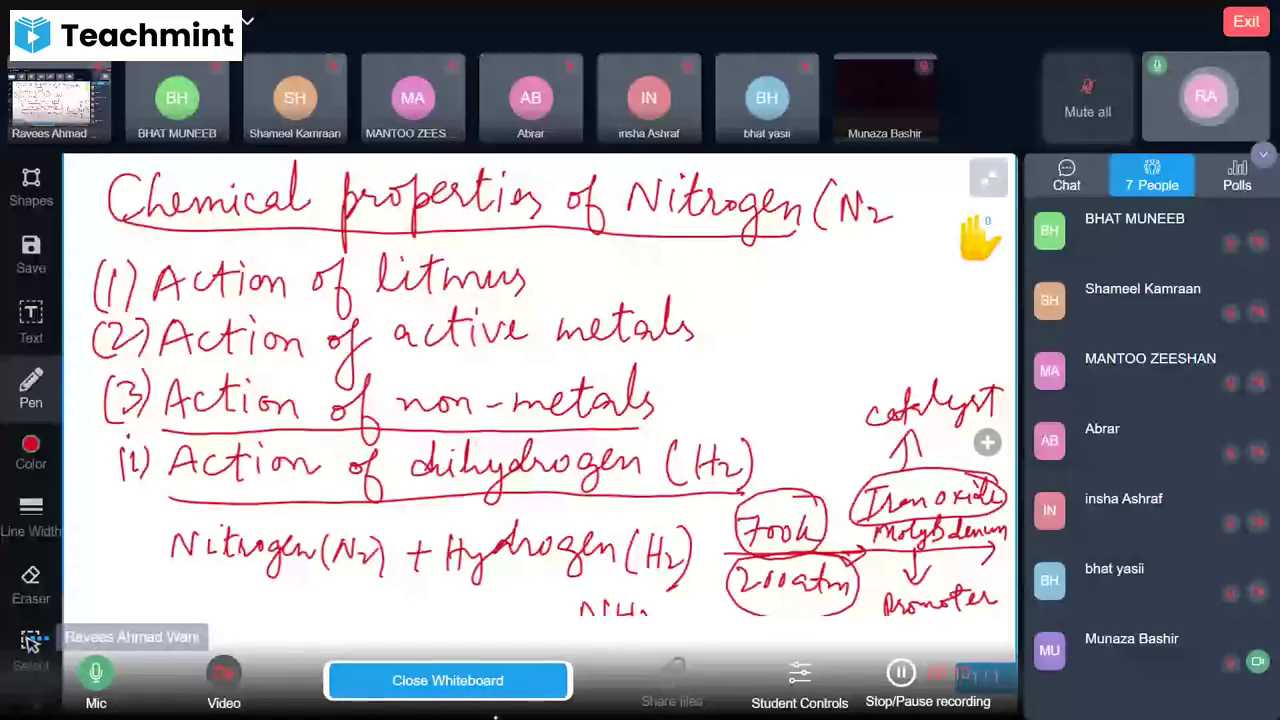 Teachmint
Exit
Ravees Ahmad ...
BH
BHAT MUNEEB
SH
Shameel Kamraan
MA
MANTOO ZEES...
AB
Abrar
IN
insha Ashraf
BH
bhat yasii
Munaza Bashir
Mute all
RA
Shapes
Save
Text
Pen
Color
Line Width
Eraser
Select
Chemical properties of Nitrogen (N2
0
(1) Action of litmus
(2) Action of active metals
(3) Action of non-metals
(i) Action of dihydrogen (H2)
catalyst
Iron oxide
700K
Molybdenum
Nitrogen (N2) + Hydrogen (H2)
200atm
Promoter
NH3
Ravees Ahmad Wani
Chat
7 People
Polls
BH
BHAT MUNEEB
SH
Shameel Kamraan
MA
MANTOO ZEESHAN
AB
Abrar
IN
insha Ashraf
BH
bhat yasii
MU
Munaza Bashir
Mic
Video
Close Whiteboard
Share files
Student Controls
Stop/Pause recording